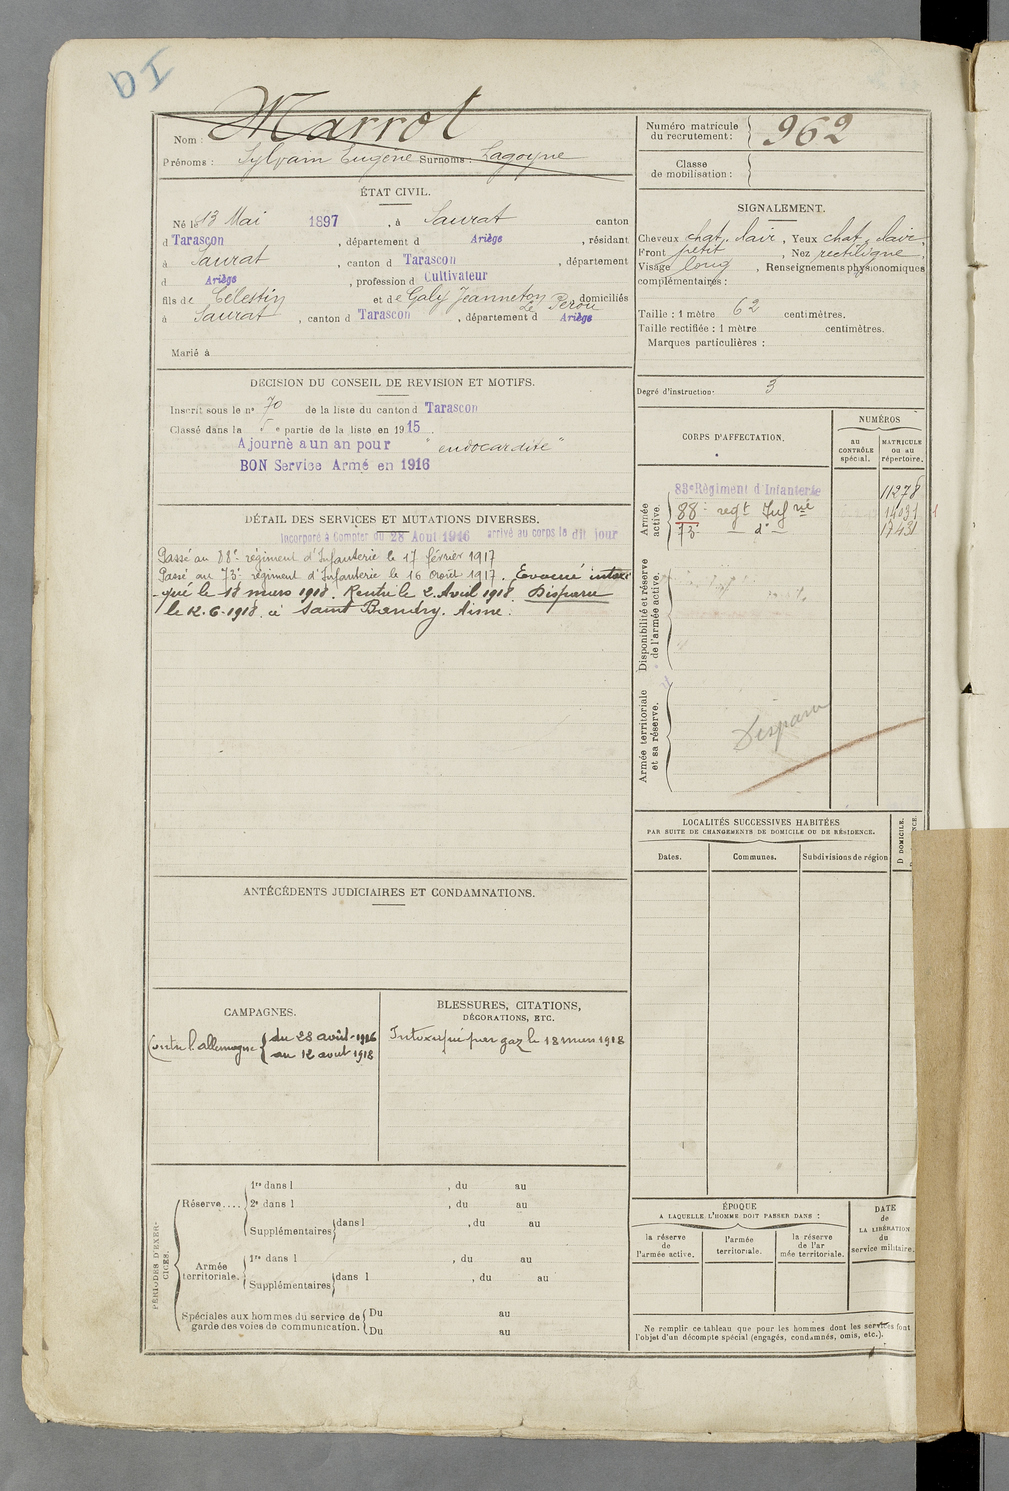 DI
Nom : Marrot
Prénoms : Sylvain Eugène Surnoms : Lagoyne
Numéro matricule du recrutement : 962
Classe de mobilisation :
ÉTAT CIVIL.
Né le 13 Mai 1897, à Saurat canton
d Tarascon, département d Ariège, résidant
à Saurat, canton d Tarascon, département
d Ariège, profession d Cultivateur
fils de Célestin et de Galy Jeanneton domiciliés
à Saurat, canton d Tarascon, département d Ariège
Marié à
SIGNALEMENT.
Cheveux chat. clair, Yeux chat. clair,
Front petit, Nez rectiligne,
Visage long, Renseignements physionomiques
complémentaires :
Taille : 1 mètre 62 centimètres.
Taille rectifiée : 1 mètre centimètres.
Marques particulières :
Degré d'instruction : 3
DECISION DU CONSEIL DE REVISION ET MOTIFS.
Inscrit sous le n° 70 de la liste du canton d Tarascon
Classé dans la 5e partie de la liste en 1915.
Ajourné a un an pour "endocardite"
BON Service Armé en 1916
CORPS D'AFFECTATION.
NUMÉROS
AU CONTRÔLE spécial.
MATRICULE ou au répertoire.
Armée active.
83e Régiment d'Infanterie 11278
88e regt Infrie
73e — d° — 17431
Disponibilité et réserve de l'armée active.
Armée territoriale et sa réserve.
Disparu
DÉTAIL DES SERVICES ET MUTATIONS DIVERSES.
Incorporé à Compter du 28 Aout 1916 arrivé au corps le dit jour
Passé au 88e régiment d'Infanterie le 17 février 1917
Passé au 73e régiment d'Infanterie le 16 Août 1917. Evacué intoxi
-qué le 18 mars 1918. Rentré le 2 Avril 1918. Disparu
le 12.6.1918. à Saint Bandry. Aisne.
LOCALITÉS SUCCESSIVES HABITÉES
PAR SUITE DE CHANGEMENTS DE DOMICILE OU DE RÉSIDENCE.
Dates.
Communes.
Subdivisions de région
D DOMICILE.
ANTÉCÉDENTS JUDICIAIRES ET CONDAMNATIONS.
CAMPAGNES.
Contre l'allemagne { du 28 août 1916
au 12 aout 1918
BLESSURES, CITATIONS,
DÉCORATIONS, ETC.
Intoxiqué par gaz le 18 mars 1918
PÉRIODES D'EXERCICES.
Réserve....
1re dans l , du au
2e dans l , du au
Supplémentaires { dans l , du au
Armée territoriale.
1re dans l , du au
Supplémentaires { dans l , du au
Spéciales aux hommes du service de garde des voies de communication.
Du au
Du au
ÉPOQUE
A LAQUELLE L'HOMME DOIT PASSER DANS :
la réserve de l'armée active.
l'armée territoriale.
la réserve de l'ar mée territoriale.
DATE de LA LIBÉRATION du service militaire.
Ne remplir ce tableau que pour les hommes dont les services font
l'objet d'un décompte spécial (engagés, condamnés, omis, etc.).